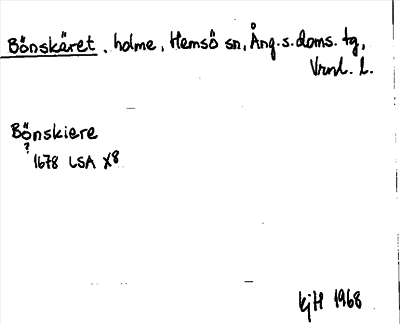 Bönskäret, holme, Hemsö sn, Ång. s. doms. tg,
Vrnl. l.
Bönskiere
?
1678 LSA X8
kjH 1968